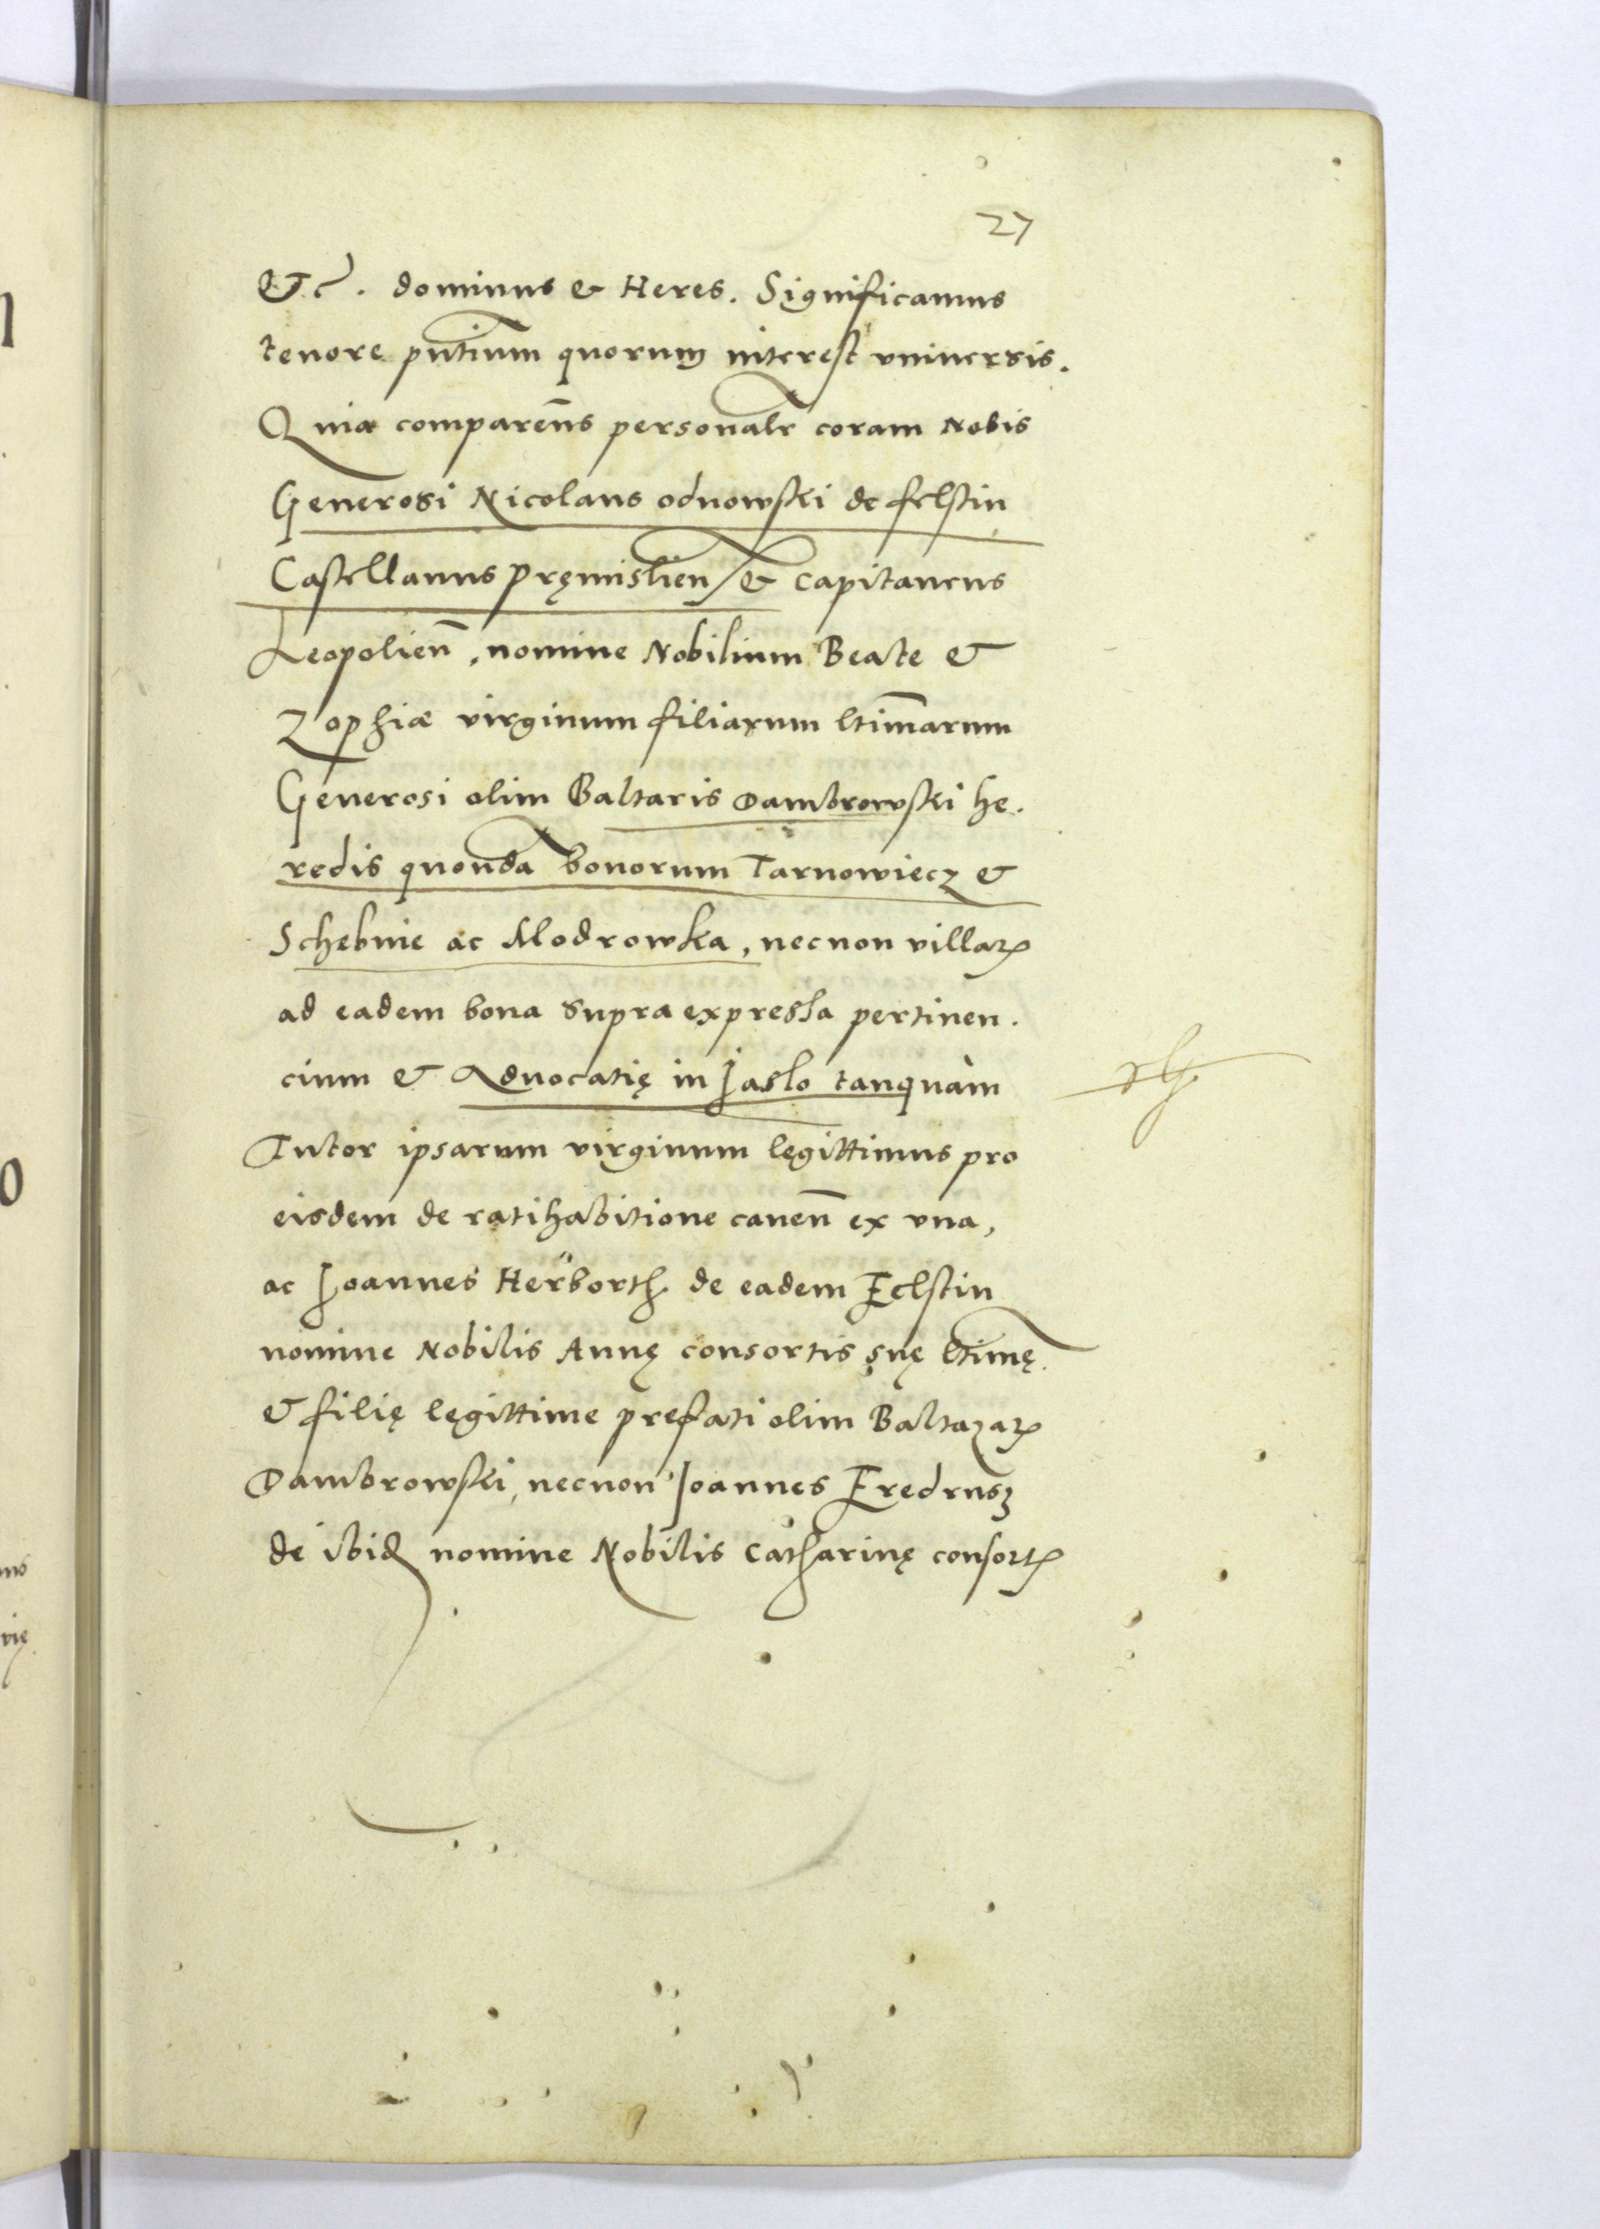 27
&c. dominus & Heres. Significamus
tenore pntium quorum interest vniuersis.
Quia comparens personalr coram Nobis
Generosi Nicolaus odnowski de felstin
Castellanus Pręmislien & Capitaneus
Leopolien̄, nomine Nobilium Beate &
Zophiæ virginum filiarum ltimarum
Generosi olim Baltaris Dambrowski he.
redis quonda bonorum Tarnowiecz &
Schebnie ac Modrowka, necnon villaꝝ
ad eadem bona supra expressa pertinen.
cium & Aduocatię in Jaslo tanquàm
Tutor ipsarum virginum legittimus pro
eisdem de ratihabitione cauen̄ ex vna,
ac Joannes Herborth de eadem Felstin
nomine Nobilis Annę consortis suę ltimę
& filię legittime prefati olim Baltazaꝝ
Dambrowski, necnon Joannes Fredrusz
de ibid nomine Nobilis Catharinę consortꝭ